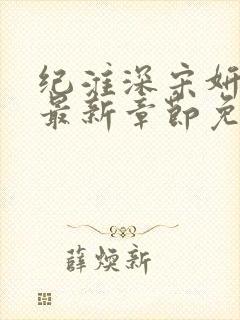 纪淮深宋妍
最新章节免
薛焕新